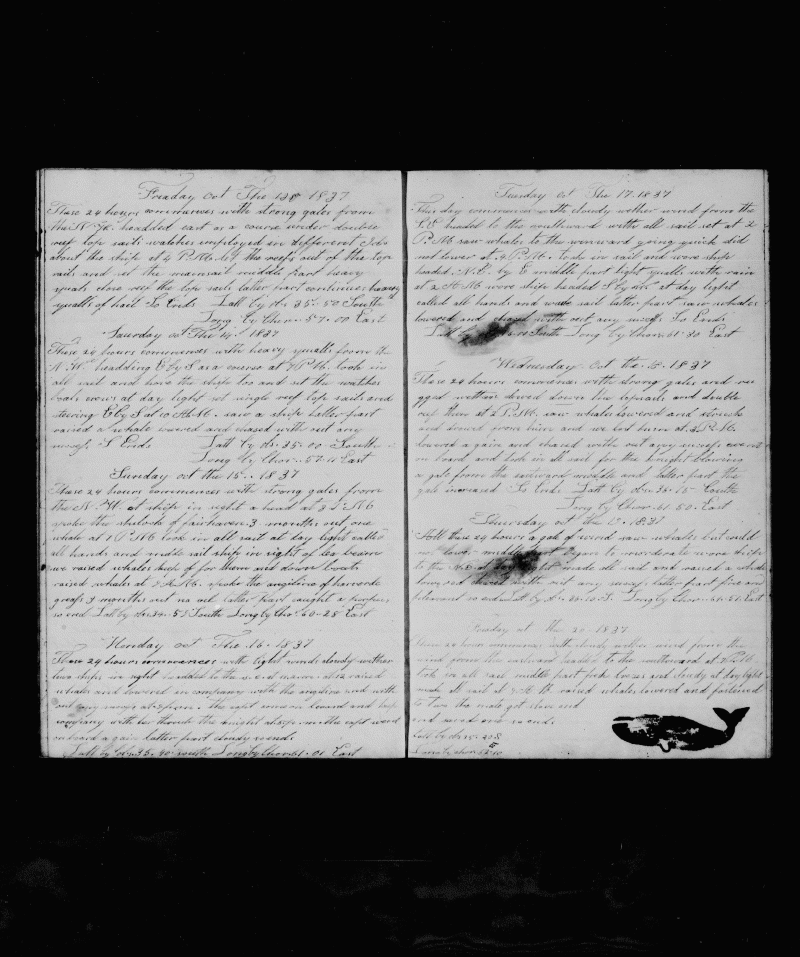 Fraday oct The 13 1837
These 24 hours commences with strong gales from
the N.W. headded east as a course under double
reef top sails watches employed in different Jobs
about the ship at 4 P.M. let the reefs out of the top
sails and set the mainsail middle part heavy
squals close reef the top sails latter part continues heavy
squalls of hail So Ends Latt by ob. 35. 50 South
Long by Chor. 57. 00 East
Saturday oct The 14 1837
These 24 hours commences with heavy squalls from the
N.W. headding E by S as a course at 7 P.M. took in
all sail and hove the ship too and set the watches
boats crews at day light set single reef top sails and
steering E by S at 10 A.M. saw a ship latter part
raised a whale lowered and chased with out any
sucsess So Ends Latt by ob. 35. 00 South
Long by Chor. 57. 11 East
Sunday oct the 15. 1837
These 24 hours commences with strong gales from
the N.W. a ship in sight a head at 3 P.M.
spoke the of fairhaven 3 mouths out one
whale at 7 P.M. took in all sail at day light called
all hands and made sail ship in sight
we raised whales ship of for them and down boats
raised whales at 7 A.M. spoke the angeline of
3 mouths out no oil latter part caught a
so end Latt by ob. 34. 53 South Long by Chor 60-28 East
Monday oct The 16. 1837
These 24 hours commences with light winds cloudy wether
two ships in sight headded to the at 12 raised
whales and lowered in company with the angeline and with
out any sucsess at 5 P.M. the capt come on board and kept
company with her through the night at 10 the capt went
on board again latter part cloudy so end
Latt by ob. 35. 40 South Long by Chor. 61. 01 East
Tuesday oct The 17. 1837
This day commences with cloudy wether wind from the
S.E. headed to the southward with all sail set at 2
P.M. saw whales to the winward going quick did
not lower at 4 P.M. took in sail and wore ship
headed N.E. by E middle part light squalls with rain
at 2 A.M. wore ship headed S by W at day light
called all hands and made sail latter part saw whales
lowered and chased with out any sucsess So Ends
Latt by South Long by Chor. 61. 30 East
Wednesday Oct the 1837
These 24 hours commences with strong gales and
rugged wether down the topsails and double
reef them at 2 P.M. saw whales lowered and struck
and from him and we lost him at 3 P.M.
lowered a gain and chased with out any sucsess
on board and took in all sail for the knight blowing
a gale from the eastward middle and latter part the
gale increased So Ends Latt by ob. 35. 15 South
Long by Chor 61 50. East
Thursday oct the 1837
these 24 hours a gale of wind saw whales but could
not lower middle part began to moderate wore ship
to the N.E. at day light made all sail and raised a whale
lowered chased with out any sucsess latter part fine and
pleasant so end Latt by ob. Long by Chor. East
Fraday oct the 20. 1837
These 24 hours commences with cloudy wether wind from the
wind from the eastward headed to the southward at P.M.
took in all sail middle part and cloudy at day light
made all sail at 7 A.M. raised whales lowered and fastened
to two
and so ends.
Latt by ob. 35. 20 S
Long by chor.